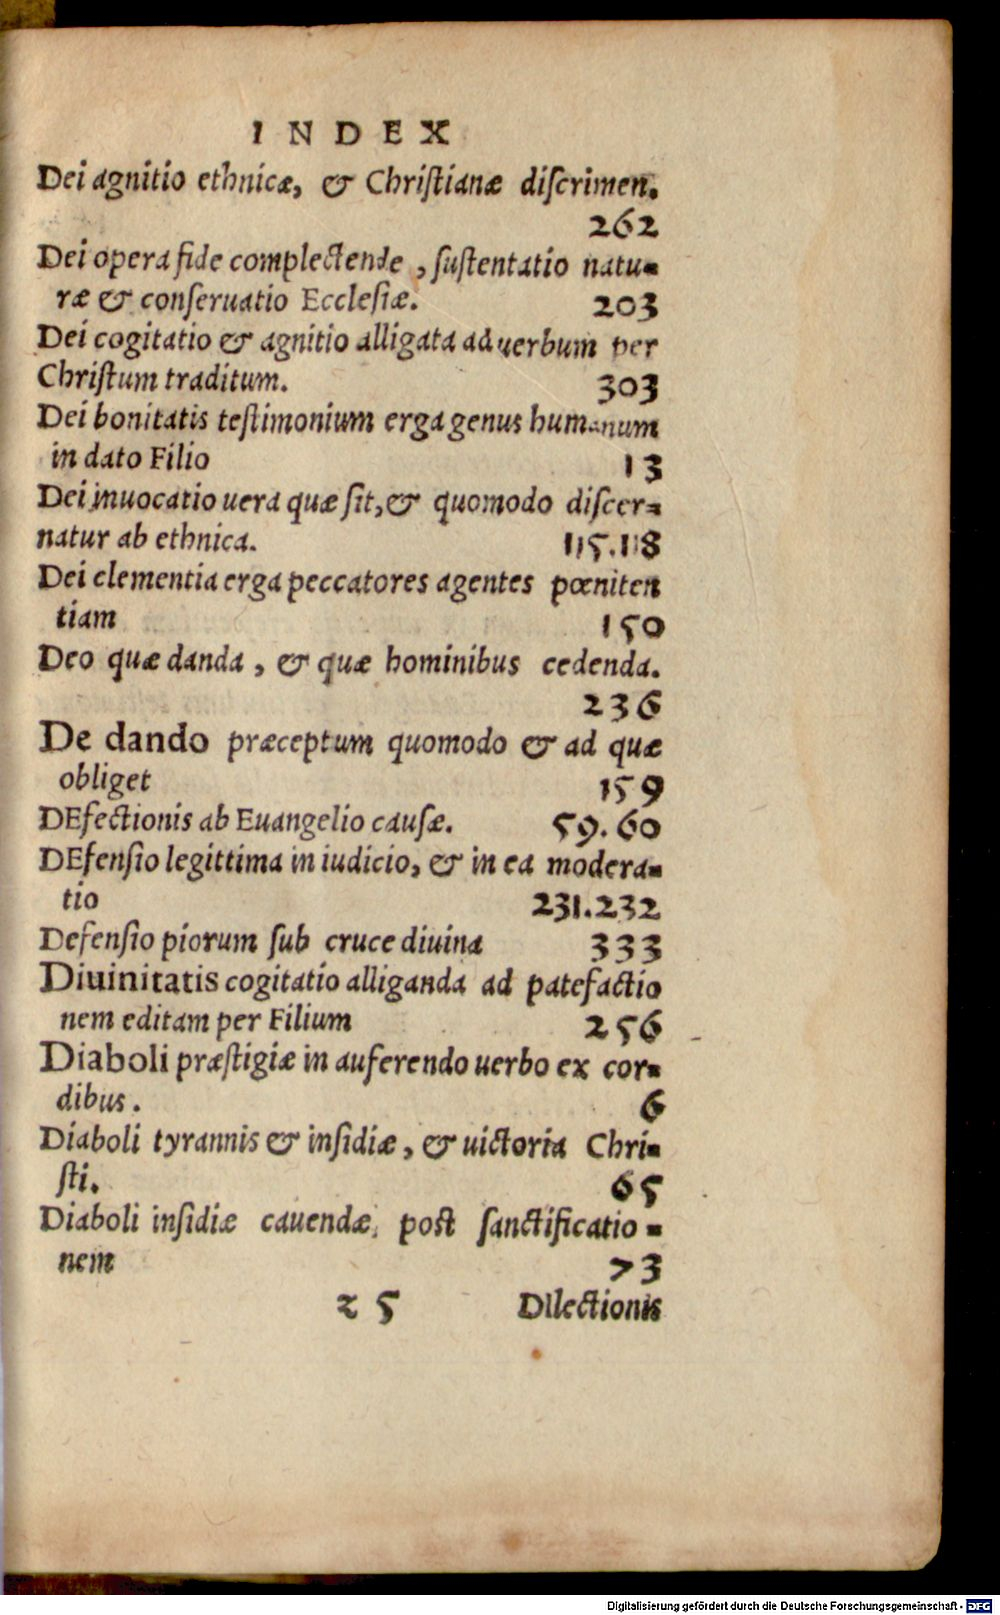 INDEX
Dei agnitio ethnicæ, & Chriſtianæ diſcrimen.
262
Dei opera fide complectende, ſuſtentatio natu-
ræ & conſeruatio Eccleſiæ. 203
Dei cogitatio & agnitio alligata ad uerbum per
Chriſtum traditum. 303
Dei bonitatis teſtimonium erga genus humanum
in dato Filio 13
Dei inuocatio uera quæ ſit, & quomodo diſcer-
natur ab ethnica. 115.118
Dei clementia erga peccatores agentes pœniten
tiam 150
Deo quæ danda, & quæ hominibus cedenda.
236
De dando præceptum quomodo & ad quæ
obliget 159
DEfectionis ab Euangelio cauſæ. 59.60
DEfenſio legittima in iudicio, & in ea modera-
tio 231.232
Defenſio piorum ſub cruce diuina 333
Diuinitatis cogitatio alliganda ad patefactio
nem editam per Filium 256
Diaboli præſtigiæ in auferendo uerbo ex cor-
dibus. 6
Diaboli tyrannis & inſidiæ, & uictoria Chri-
ſti. 65
Diaboli inſidiæ cauendæ, poſt ſanctificatio-
nem 73
z 5 DIlectionis
Digitalisierung gefördert durch die Deutsche Forschungsgemeinschaft - DFG